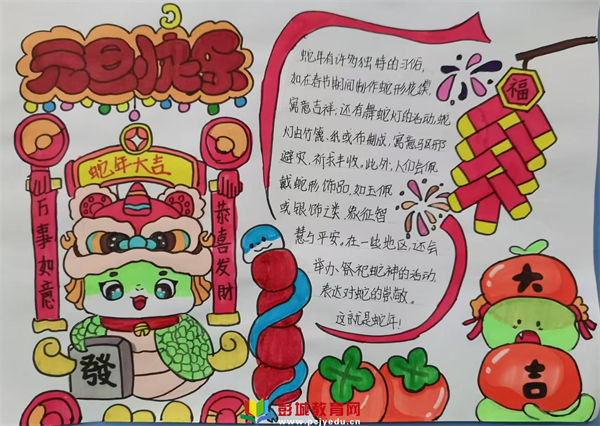 元旦快乐
蛇年大吉
万事如意
恭喜发财
發
蛇年有许多独特的习俗,
如在春节期间制作蛇形花馍,
寓意吉祥,还有舞蛇灯的活动,蛇
灯由竹篾、纸或布制成,寓意驱邪
避灾,祈求丰收。此外,人们会佩
戴蛇形饰品,如玉佩
或银饰之类,象征智
慧与平安,在一些地区,还会
举办祭祀蛇神的活动,
表达对蛇的崇敬。
这就是蛇年!
福
大
吉
彭城教育网
www.pejyedu.cn